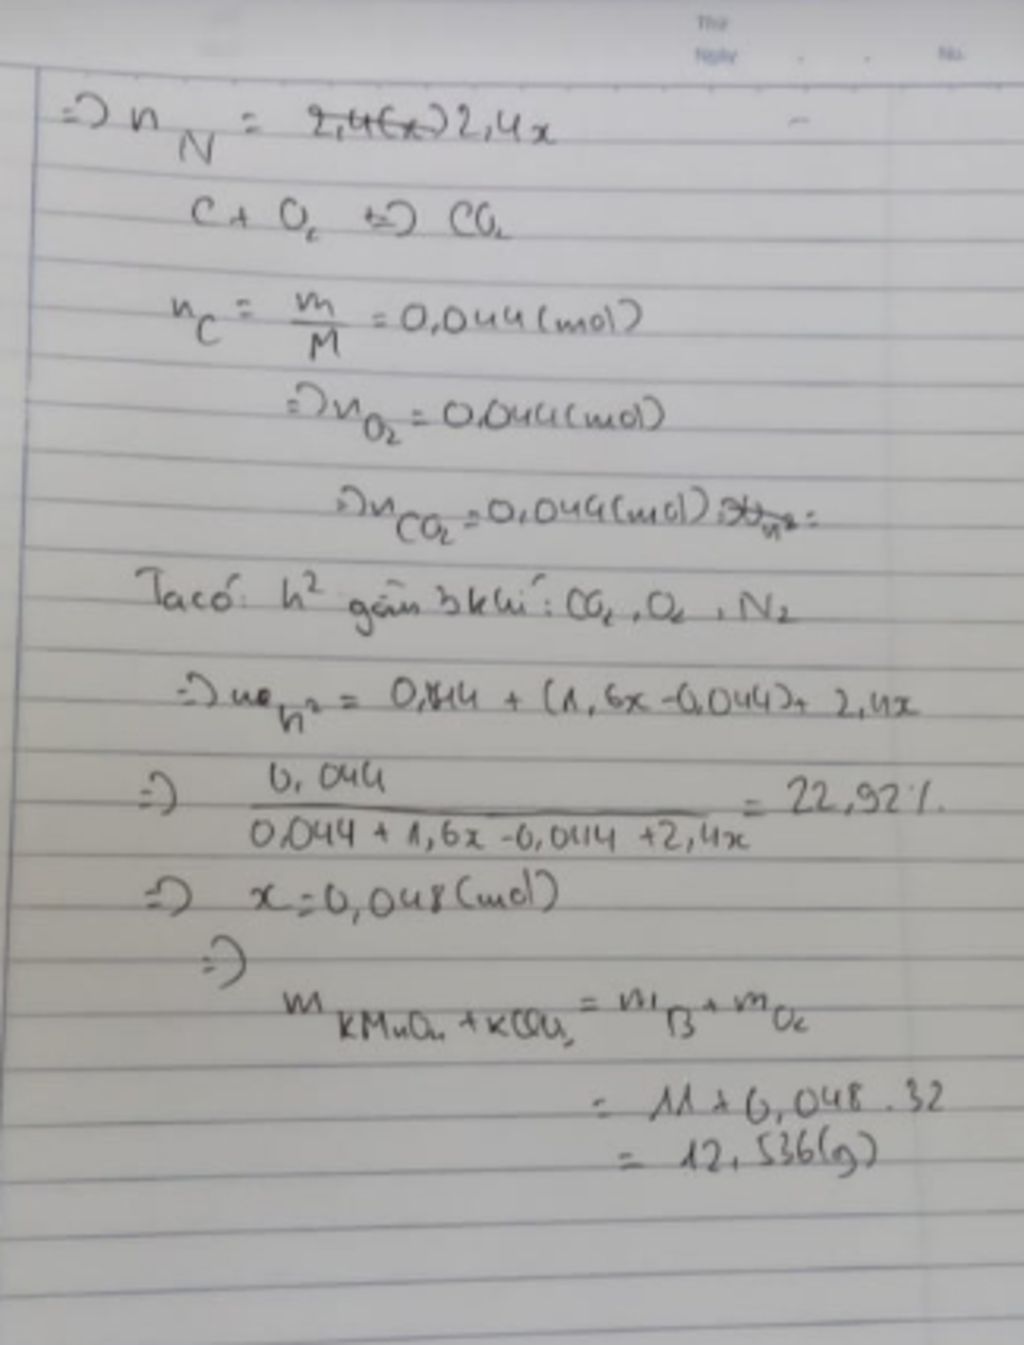 Thứ
Ngày . . No.
=> n_N = 2,4x
C + O₂ => CO₂
n_C = m/M = 0,044 (mol)
=> n_O₂ = 0,044 (mol)
=> n_CO₂ = 0,044 (mol)
Ta có: h² gồm 3 khí: CO₂, O₂, N₂
=> n_h² = 0,044 + (1,6x - 0,044) + 2,4x
=> 0,044 / (0,044 + 1,6x - 0,044 + 2,4x) = 22,92%.
=> x = 0,048 (mol)
=>
m_KMnO₄ + KClO₃ = m_B + m_O₂
= 11 + 0,048 . 32
= 12,536 (g)